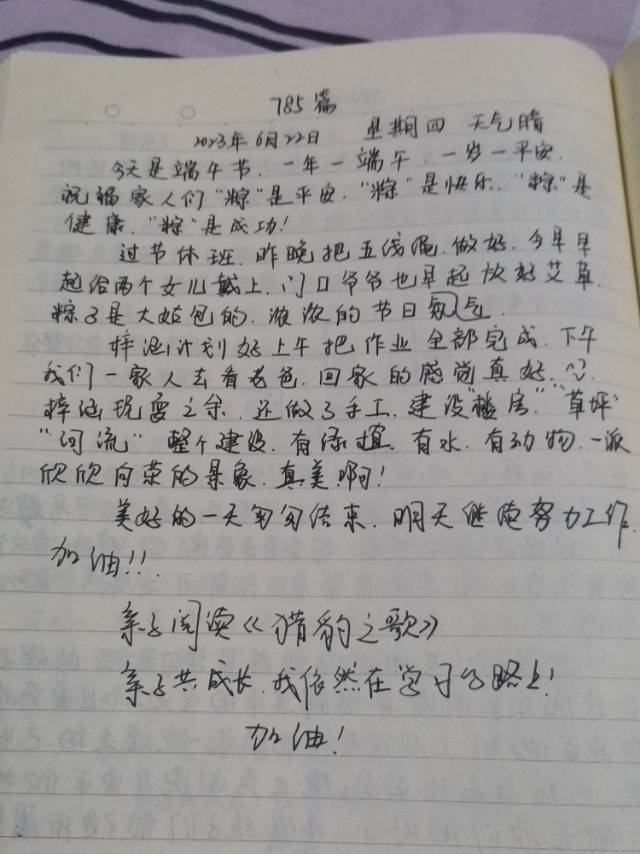 785篇
2023年6月22日 星期四 天气晴
今天是端午节.一年一端午.一岁一平安.
祝福家人们"粽"是平安."粽"是快乐."粽"是
健康."粽"是成功!
过节休班.昨晚把五线绳.做好.今早早
起给两个女儿戴上.门口爷爷也早起 好艾草.
粽子是大姑包的.浓浓的节日氛气.
梓涵计划好上午把作业全部完成.下午
我们一家人去看老爸.回家的感觉真好.
梓涵玩耍之余.还做了手工.建设"楼房""草坪"
"河流" 整个建设.有绿植.有水.有动物.一派
欣欣向荣的景象.真美啊!
美好的一天匆匆结束.明天继续努力工作.
加油!!.
亲子阅读《猎豹之歌》
亲子共成长.我依然在学习的路上!
加油!